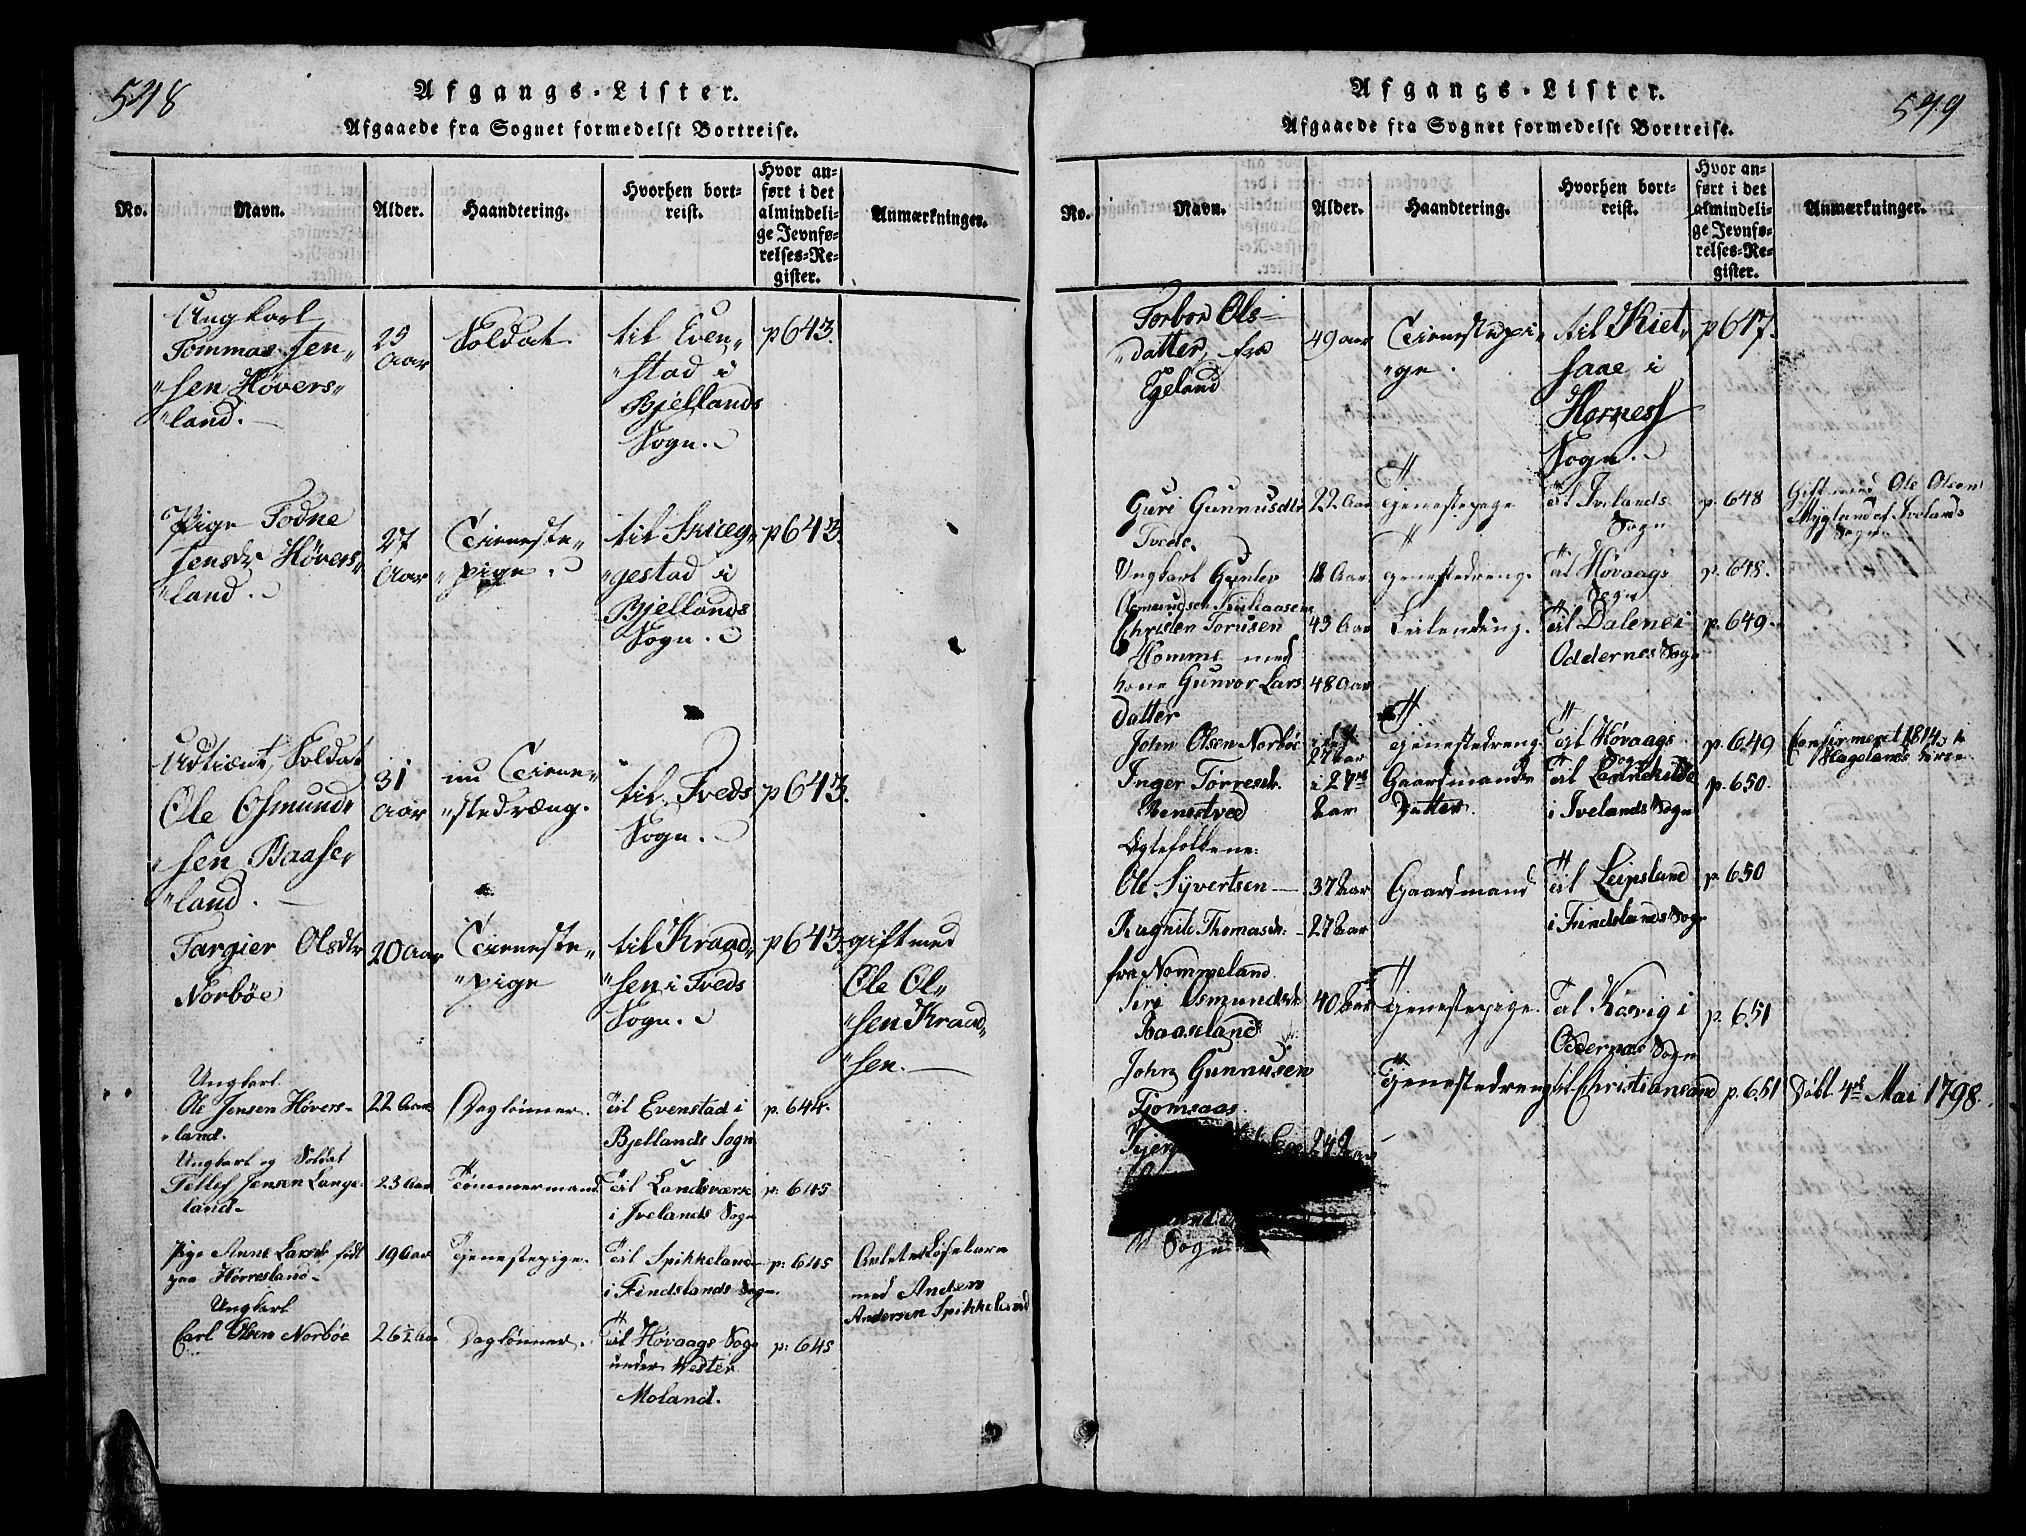 548
Afgangs-Lister.
Afgaaede fra Sognet formedelst Bortreise.
No.
Navn.
Alder.
Haandtering.
Hvorhen bort-
reist.
Hvor an-
ført i det
almindeli-
ge Jevnfø-
relses-Re-
gister.
Anmærkninger.
Ungkarl
Tommas Jen„
„sen Høvers„
„land.
25
Aar
Soldat
til Even„
„stad i
Bjellands
Sogn.
p 643.
Pige Todne
Jensdr Høvers„
„land.
27
Aar
Tieneste„
„pige.
„gestad i
Bjellands
Sogn.
p 643.
Udtient Soldat
Ole Osmund„
„sen Baase„
„land.
31
Aar
nu Tiene„
„stedræng.
til Tveds
Sogn.
p 643.
Targier Olsdtr
Norbøe
20 Aar
Tieneste„
„pige
til Kraad„
„sen i Tveds
Sogn.
p 643.
gift med
Ole Ol„
„sen Kraad„
„sen.
Ungkarl.
Ole Jensen Høvers-
„land.
22 Aar
Daglønner.
til Evenstad i
Bjellands Sogn
p. 644.
Ungkarl og Soldat
Tellef Jensen Lange-
land-
23 Aar
Tømmermand
Til Landsværk
i Ivelands Sogn
p: 645
Pige Anne Larsdr født
paa Hørresland-
19 Aar
Tjenestepige.
Til Spikkeland
i Findslands Sogn.
p: 645
Avlet Løsebarn
med Anders
Andersen Spikkeland
Ungkarl
Carl Olsen Norbøe
26½ Aar
Daglønner.
til Høvaags Sogn
under Vester
Moland.
p: 645
549
Afgangs-Lister.
Afgaaede fra Sognet formedelst Bortreise.
No.
Navn.
Alder.
Haandtering.
Hvorhen bort-
reist.
Hvor an-
ført i det
almindeli-
ge Jevnfø-
relses-Re-
gister.
Anmærkninger.
Torbor Ols-
„datter, fra
Egeland
49 aar
Tienestepi-
„ge.
til Kiet„
saae i
Hornes
Sogn.
p 647.
Guri Gunnusdtr
Tvede.
22 Aar
Tjenestepige
til Ivelands
Sogn
p. 648
Gift med Ole Olsen
Mygland af Ivelands
Sogn
Ungkarl Gunlev
Osmundsen
18 Aar
Tjenestedreng.
til Høvaags
Sogn
p. 648.
Christen Torusen
Homme med
Kone Gunvor Lars
datter
43 Aar
48 Aar
Leilending.
til Dalene i
Oddernes Sogn
p. 649.
John Olsen Norbøe
27 Aar
Tjenestedreng
til Høvaags
Sogn
p. 649
Confirmeret 1814, i
Hægelands Kirke
Inger Torresdr.
Benestved
i 27de
Aar
Gaardmands
Datter.
Til Landekilde
i Ivelands Sogn
p. 650.
Egtefolkene:
Ole Syvertsen
37 Aar
Gaardmand
til Leipsland
i Findslands Sogn
p. 650
Ragnild Thomasdr.
fra Nommeland
27 Aar
Siri Osmundsdr
Baaseland
40 Aar
Tjenestepige.
til Kosvig i
Oddernæs Sogn
p. 651
John Gunnusen
Fjomsaas.
Tjenestedreng
til Christiansand
p. 651
Døbt 4de Mai 1798.
Sogn